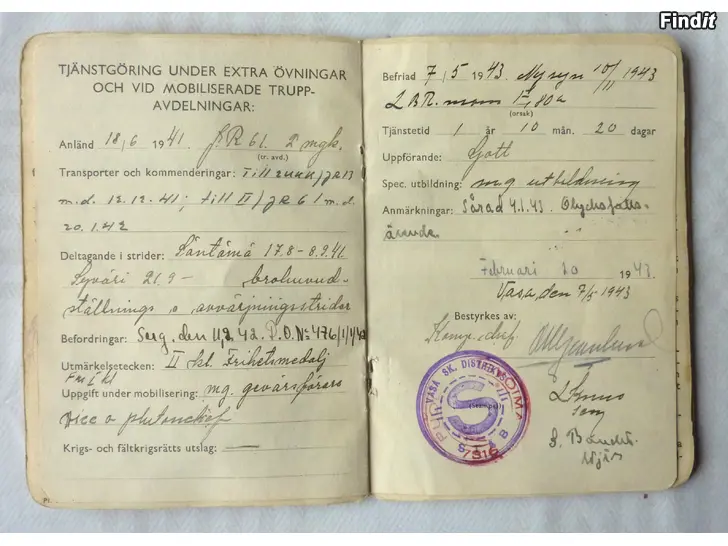 Findit
TJÄNSTGÖRING UNDER EXTRA ÖVNINGAR
OCH VID MOBILISERADE TRUPP-
AVDELNINGAR:
Anländ 18/6 1941 JR 61. 2 mgk.
(tr. avd.)
Transporter och kommenderingar: Till 2 KKK/JR 13
m.d. 12.12.41; till II/JR 61 m.d.
20.1.42
Deltagande i strider: Säntämä 17.8-8.9.41
Syväri 21.9 - brohuvud-
ställnings o avvärjningsstrider
Befordringar: Serg. den 11/2.42. D.O. No 476/1/
Utmärkelsetecken: II kl. Frihetsmedalj
Fm I kl
Uppgift under mobilisering: mg. gevärsförare
vice o plutonchef
Krigs- och fältkrigsrätts utslag: —
Befriad 7/5 1943. 10/11 1943
mom
(orsak)
Tjänstetid 1 år 10 mån. 20 dagar
Uppförande: Gott
Spec. utbildning: mg utbildning
Anmärkningar: Sårad 4.1.43. Olycksfalls-
ärende.
Februari 10 1943.
Vasa, den 7/5 1943
Bestyrkes av:
Komp. chef.
VASA SK. DISTRIKT
S
7316